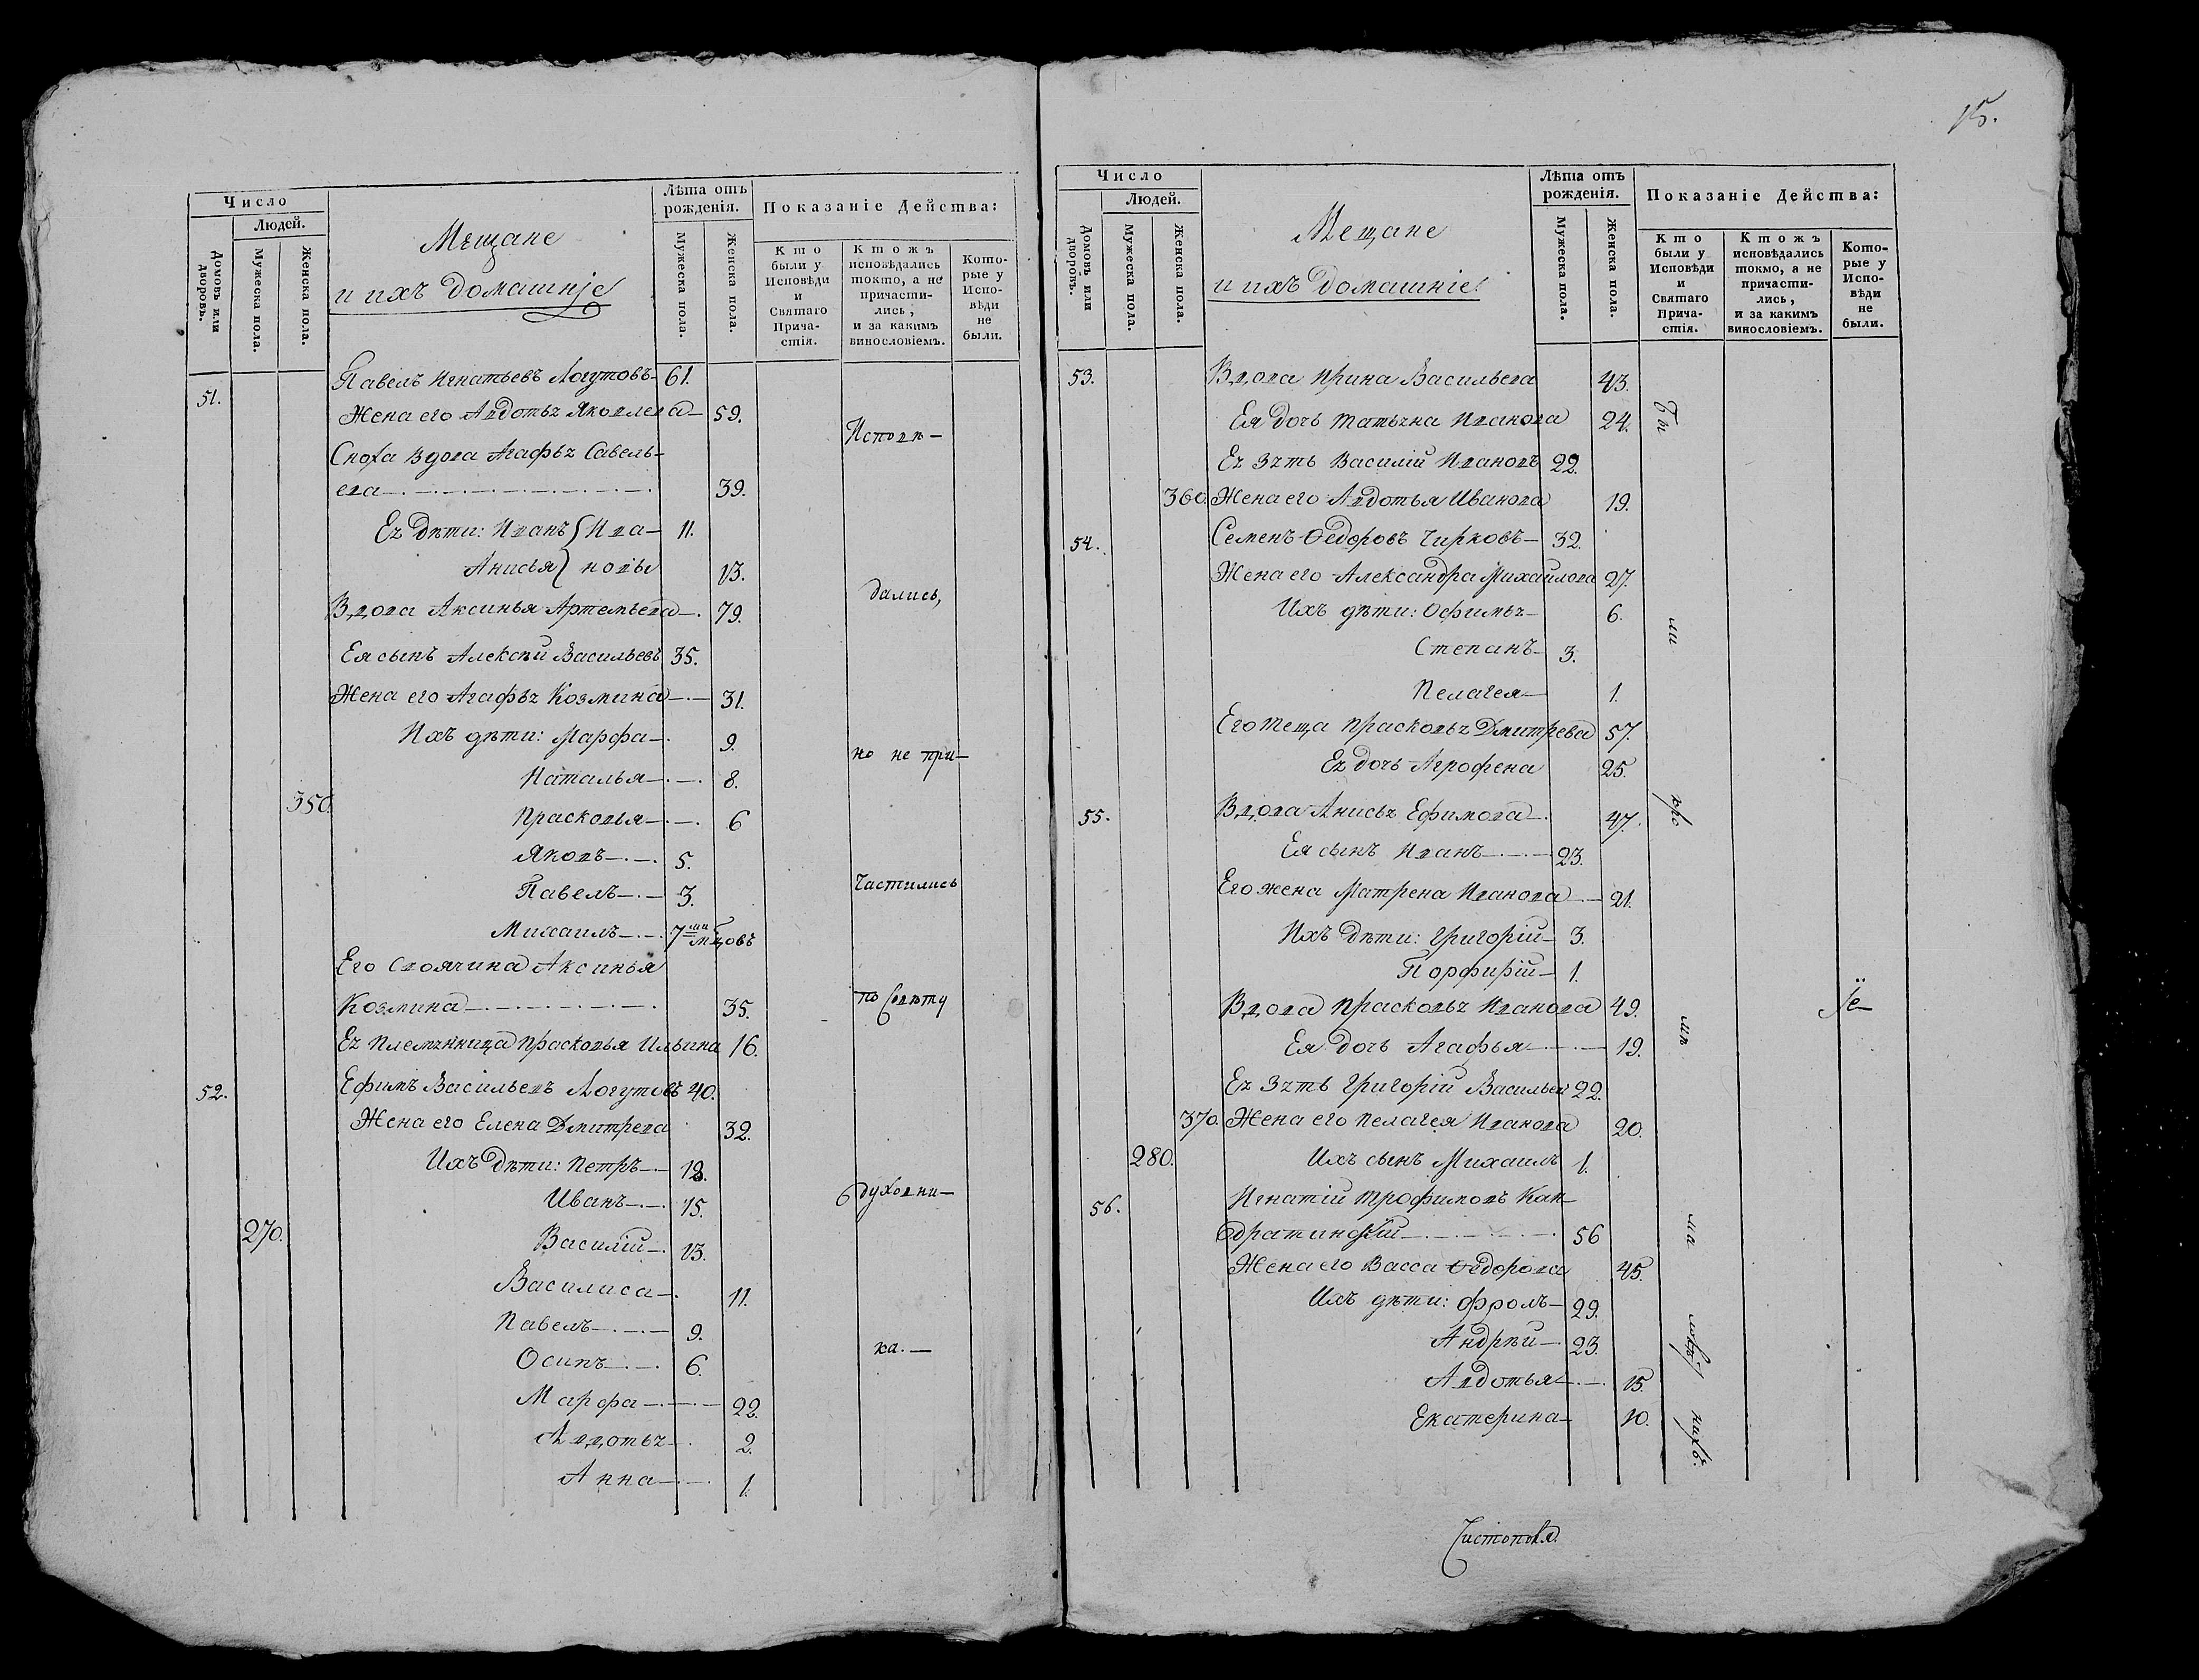 Число
Людей.
Домовъ или дворовъ.
Мужеска пола.
Женска пола.
Мещане
и ихъ домашніе
Лѣта отъ рожденія.
Мужеска пола.
Женска пола.
Показаніе Действа:
Кто были у Исповѣди и Святаго Причастія.
Ктожъ исповѣдались токмо, а не причастились, и за какимъ винословіемъ.
Которые у Исповѣди не были.
51. Павелъ Игнатьевъ Логутовъ 61.
Жена его Авдотья Яковлева 59.
Исповѣ-
Сноха вдова Агафья Савель-
ева 39.
Ея дѣти: Иванъ Ива- 11.
Анисья новы 13.
дались,
Вдова Аксинья Артемьева 79.
Ея сынъ Алексѣй Васильевъ 35.
Жена его Агафья Козмина 31.
Ихъ дѣти: Марфа 9.
но не при-
Наталья 8.
350. Прасковья 6
Яковъ 5.
Павелъ 3.
частились
Михаилъ 7ми мцовъ
Его своячина Аксинья
Козмина 35.
по совѣту
Ея племянница Прасковья Ильина 16.
52. Ефимъ Васильевъ Логутовъ 40.
Жена его Елена Дмитрева 32.
Ихъ дѣти: Петръ 18.
Иванъ 15.
духовни-
270. Василій 13.
Василиса 11.
Павелъ 9.
Осипъ 6.
ка.
Марфа 22.
Авдотья 2.
Анна 1.
15.
Число
Людей.
Домовъ или дворовъ.
Мужеска пола.
Женска пола.
Мещане
и ихъ домашніе.
Лѣта отъ рожденія.
Мужеска пола.
Женска пола.
Показаніе Действа:
Кто были у Исповѣди и Святаго Причастія.
Ктожъ исповѣдались токмо, а не причастились, и за какимъ винословіемъ.
Которые у Исповѣди не были.
53. Вдова Ирина Васильева 43.
Ея дочь Татьяна Иванова 24.
Бы
Ея зять Василій Ивановъ 22.
360 Жена его Авдотья Иванова 19.
54. Семенъ Ѳедоровъ Чирковъ 32.
Жена его Александра Михаилова 27.
Ихъ дѣти: Офимья 6.
ли
Степанъ 3.
Пелагея 1.
Его теща Прасковья Дмитрева 57.
Ея дочь Агрофена 25.
55. Вдова Анисья Ефимова 47.
Ея сынъ Иванъ 23.
Его жена Матрена Иванова 21.
Ихъ дѣти: Григорій 3.
Порфирій 1.
Вдова Прасковья Иванова 49.
Ея дочь Агафья 19.
Ея зять Григорій Васильев 22.
370. Жена его Пелагея Иванова 20.
280. Ихъ сынъ Михаилъ 1.
56. Игнатій Трофимовъ Кан-
дратинскій 56
Жена его Васса Ѳедорова 45.
Ихъ дѣти: Фролъ 29.
Андрѣй 23.
Авдотья 15.
Екатерина 10.
нихъ.